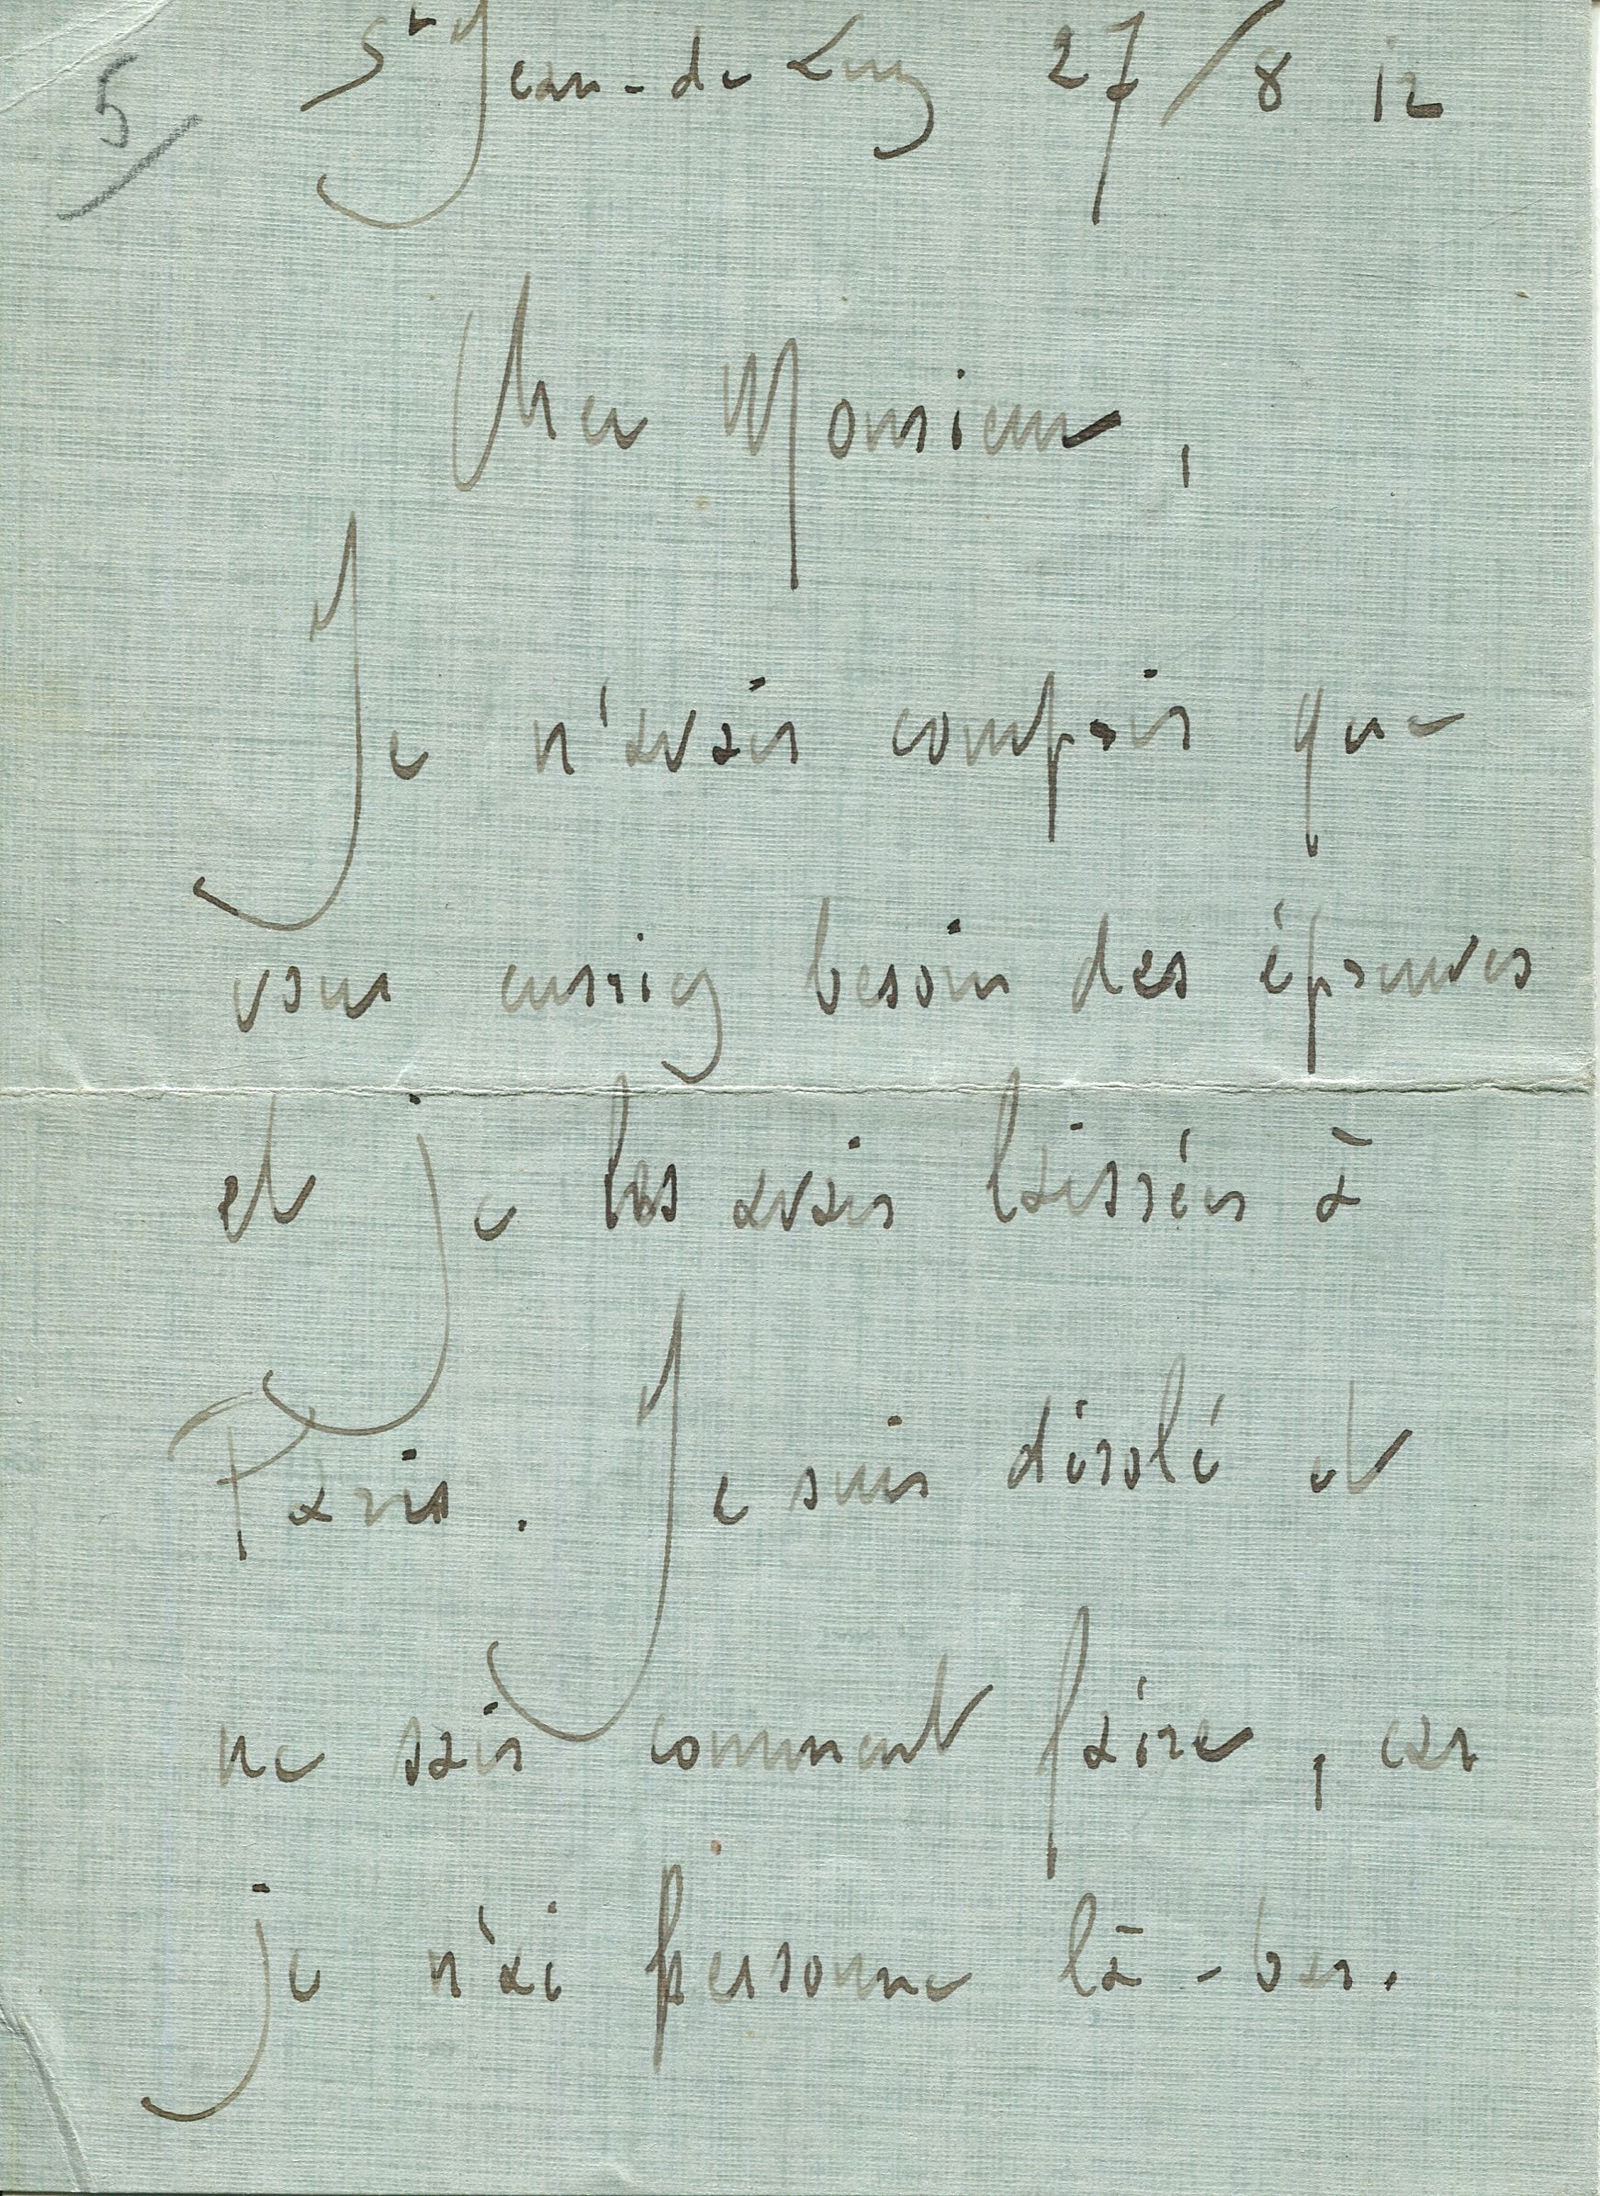 5
St Jean-de Luz 27/8 12
Cher Monsieur,
Je n'avais compris que
vous eussiez besoin des épreuves
et je les avais laissées à
Paris. Je suis désolé et
ne sais comment faire, car
je n'ai personne là-bas.